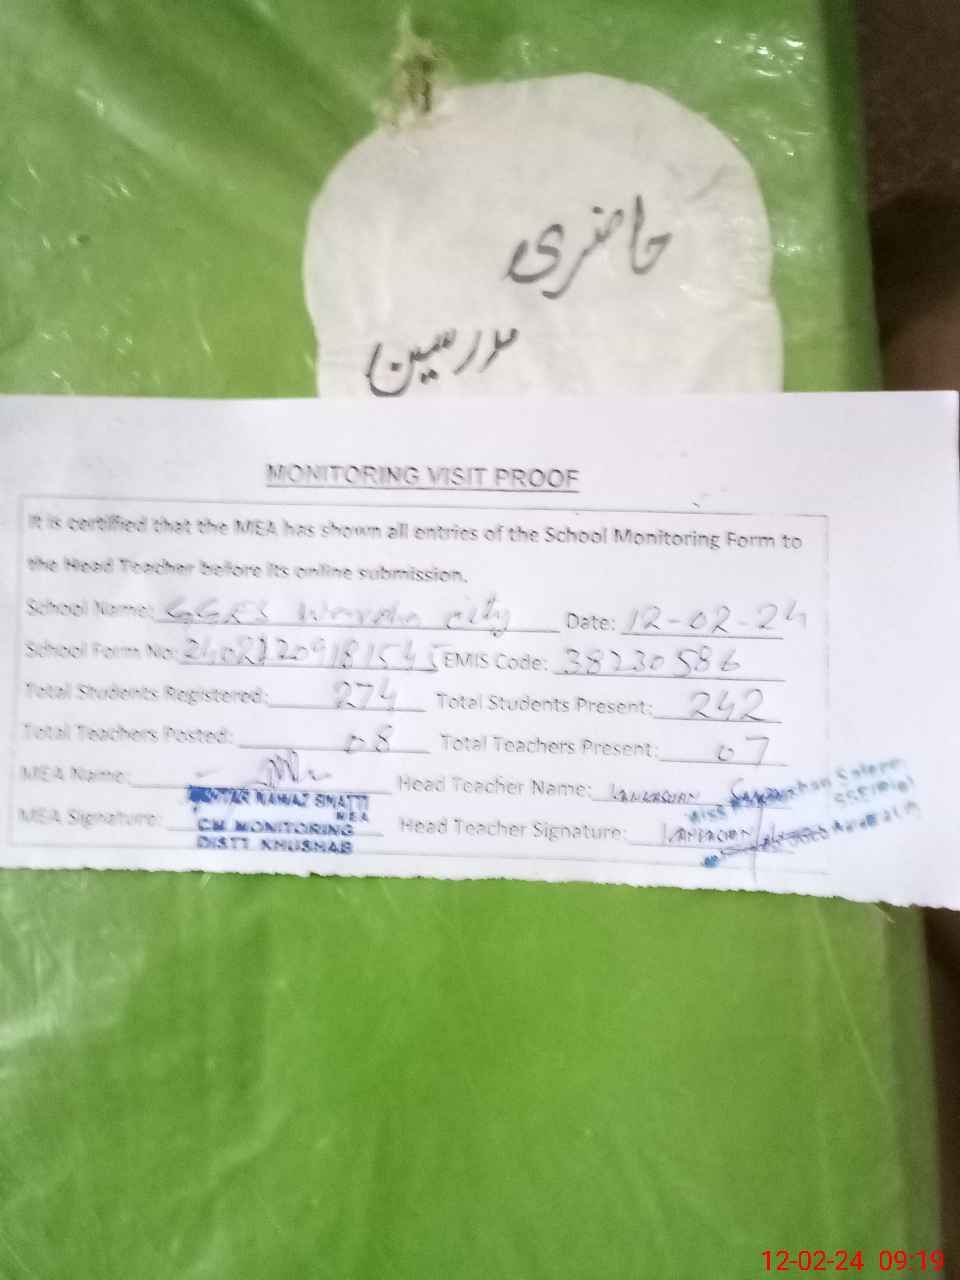 حاضری
مدرسین
MONITORING VISIT PROOF
It is certified that the MEA has shown all entries of the School Monitoring Form to
the Head Teacher before its online submission.
School Name: GGES city Date: 12-02-24
School Form No: EMIS Code: 38230586
Total Students Registered: 274 Total Students Present: 242
Total Teachers Posted: 08 Total Teachers Present: 07
MEA Name: Head Teacher Name:
NAWAZ BHATTI
MEA
MEA Signature: Head Teacher Signature:
CM MONITORING
DISTT KHUSHAB
12-02-24 09:19